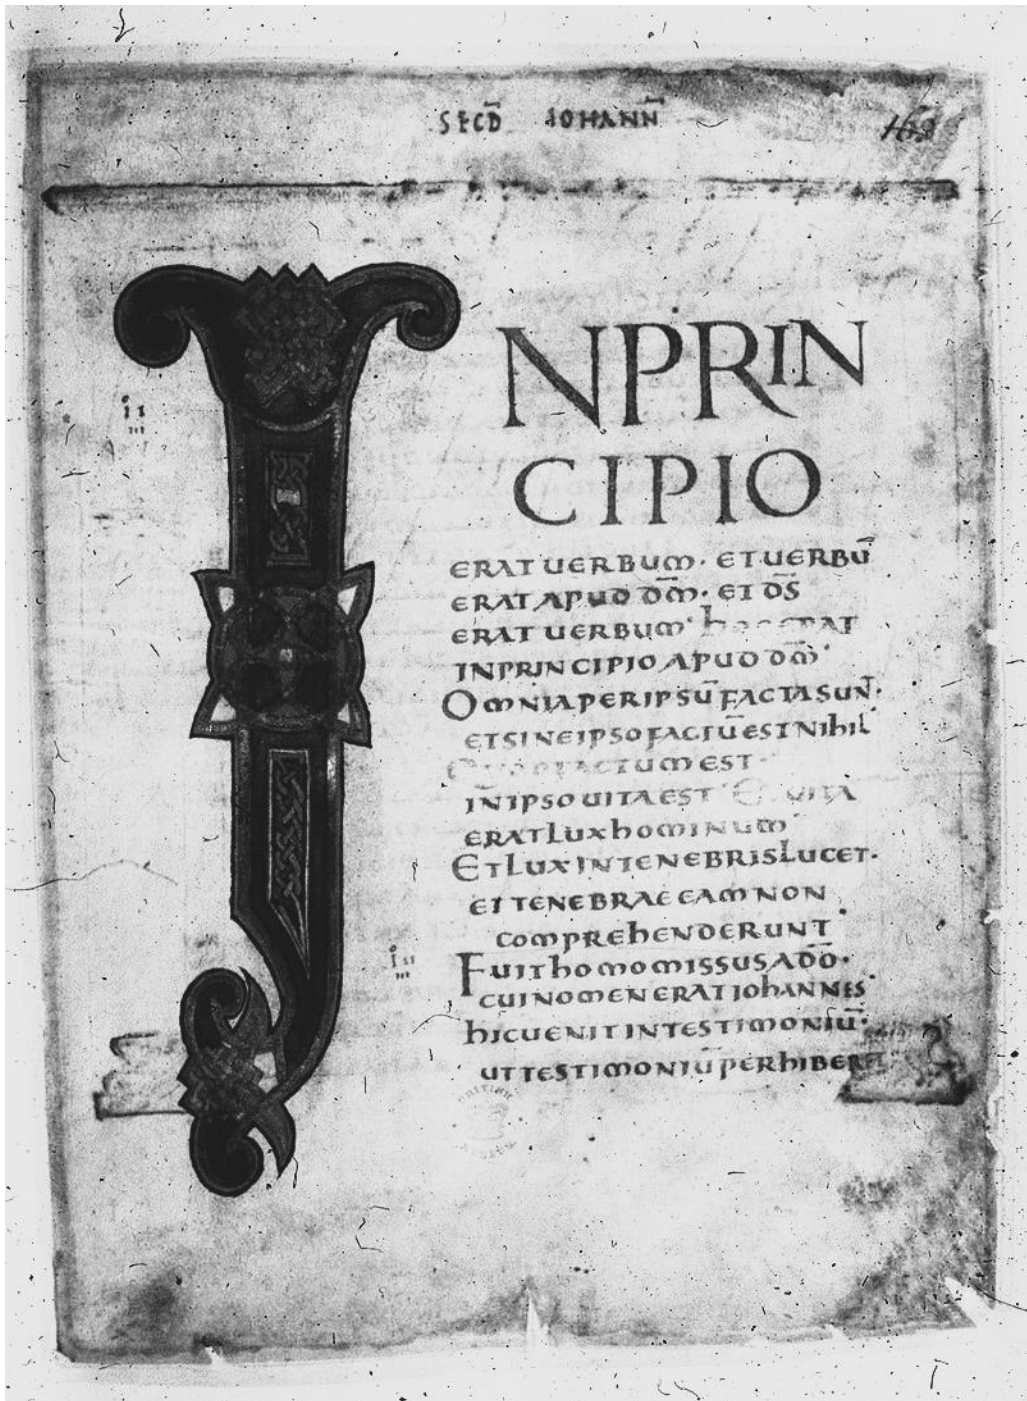 SECD̄ IOHANN̄
168
INPRIN
CIPIO
ERAT UERBUM· ET UERBŪ
ERAT APUD DM̄· ET DS̄
ERAT UERBUM· hOC ERAT
INPRINCIPIO APUD DM̄·
OMNIA PER IPSŪ FACTA SUN̄·
ET SINE IPSO FACTŪ EST NIhIL
QUOD FACTUM EST·
IN IPSO UITA EST· ET UITA
ERAT LUX hOMINUM·
ET LUX IN TENEBRIS LUCET·
ET TENEBRAE EAM NON
COMPREhENDERUNT·
FUIT hOMO MISSUS A DŌ·
CUI NOMEN ERAT IOhANNES·
hIC UENIT IN TESTIMONIŪ·
UT TESTIMONIŪ PERhIBERET